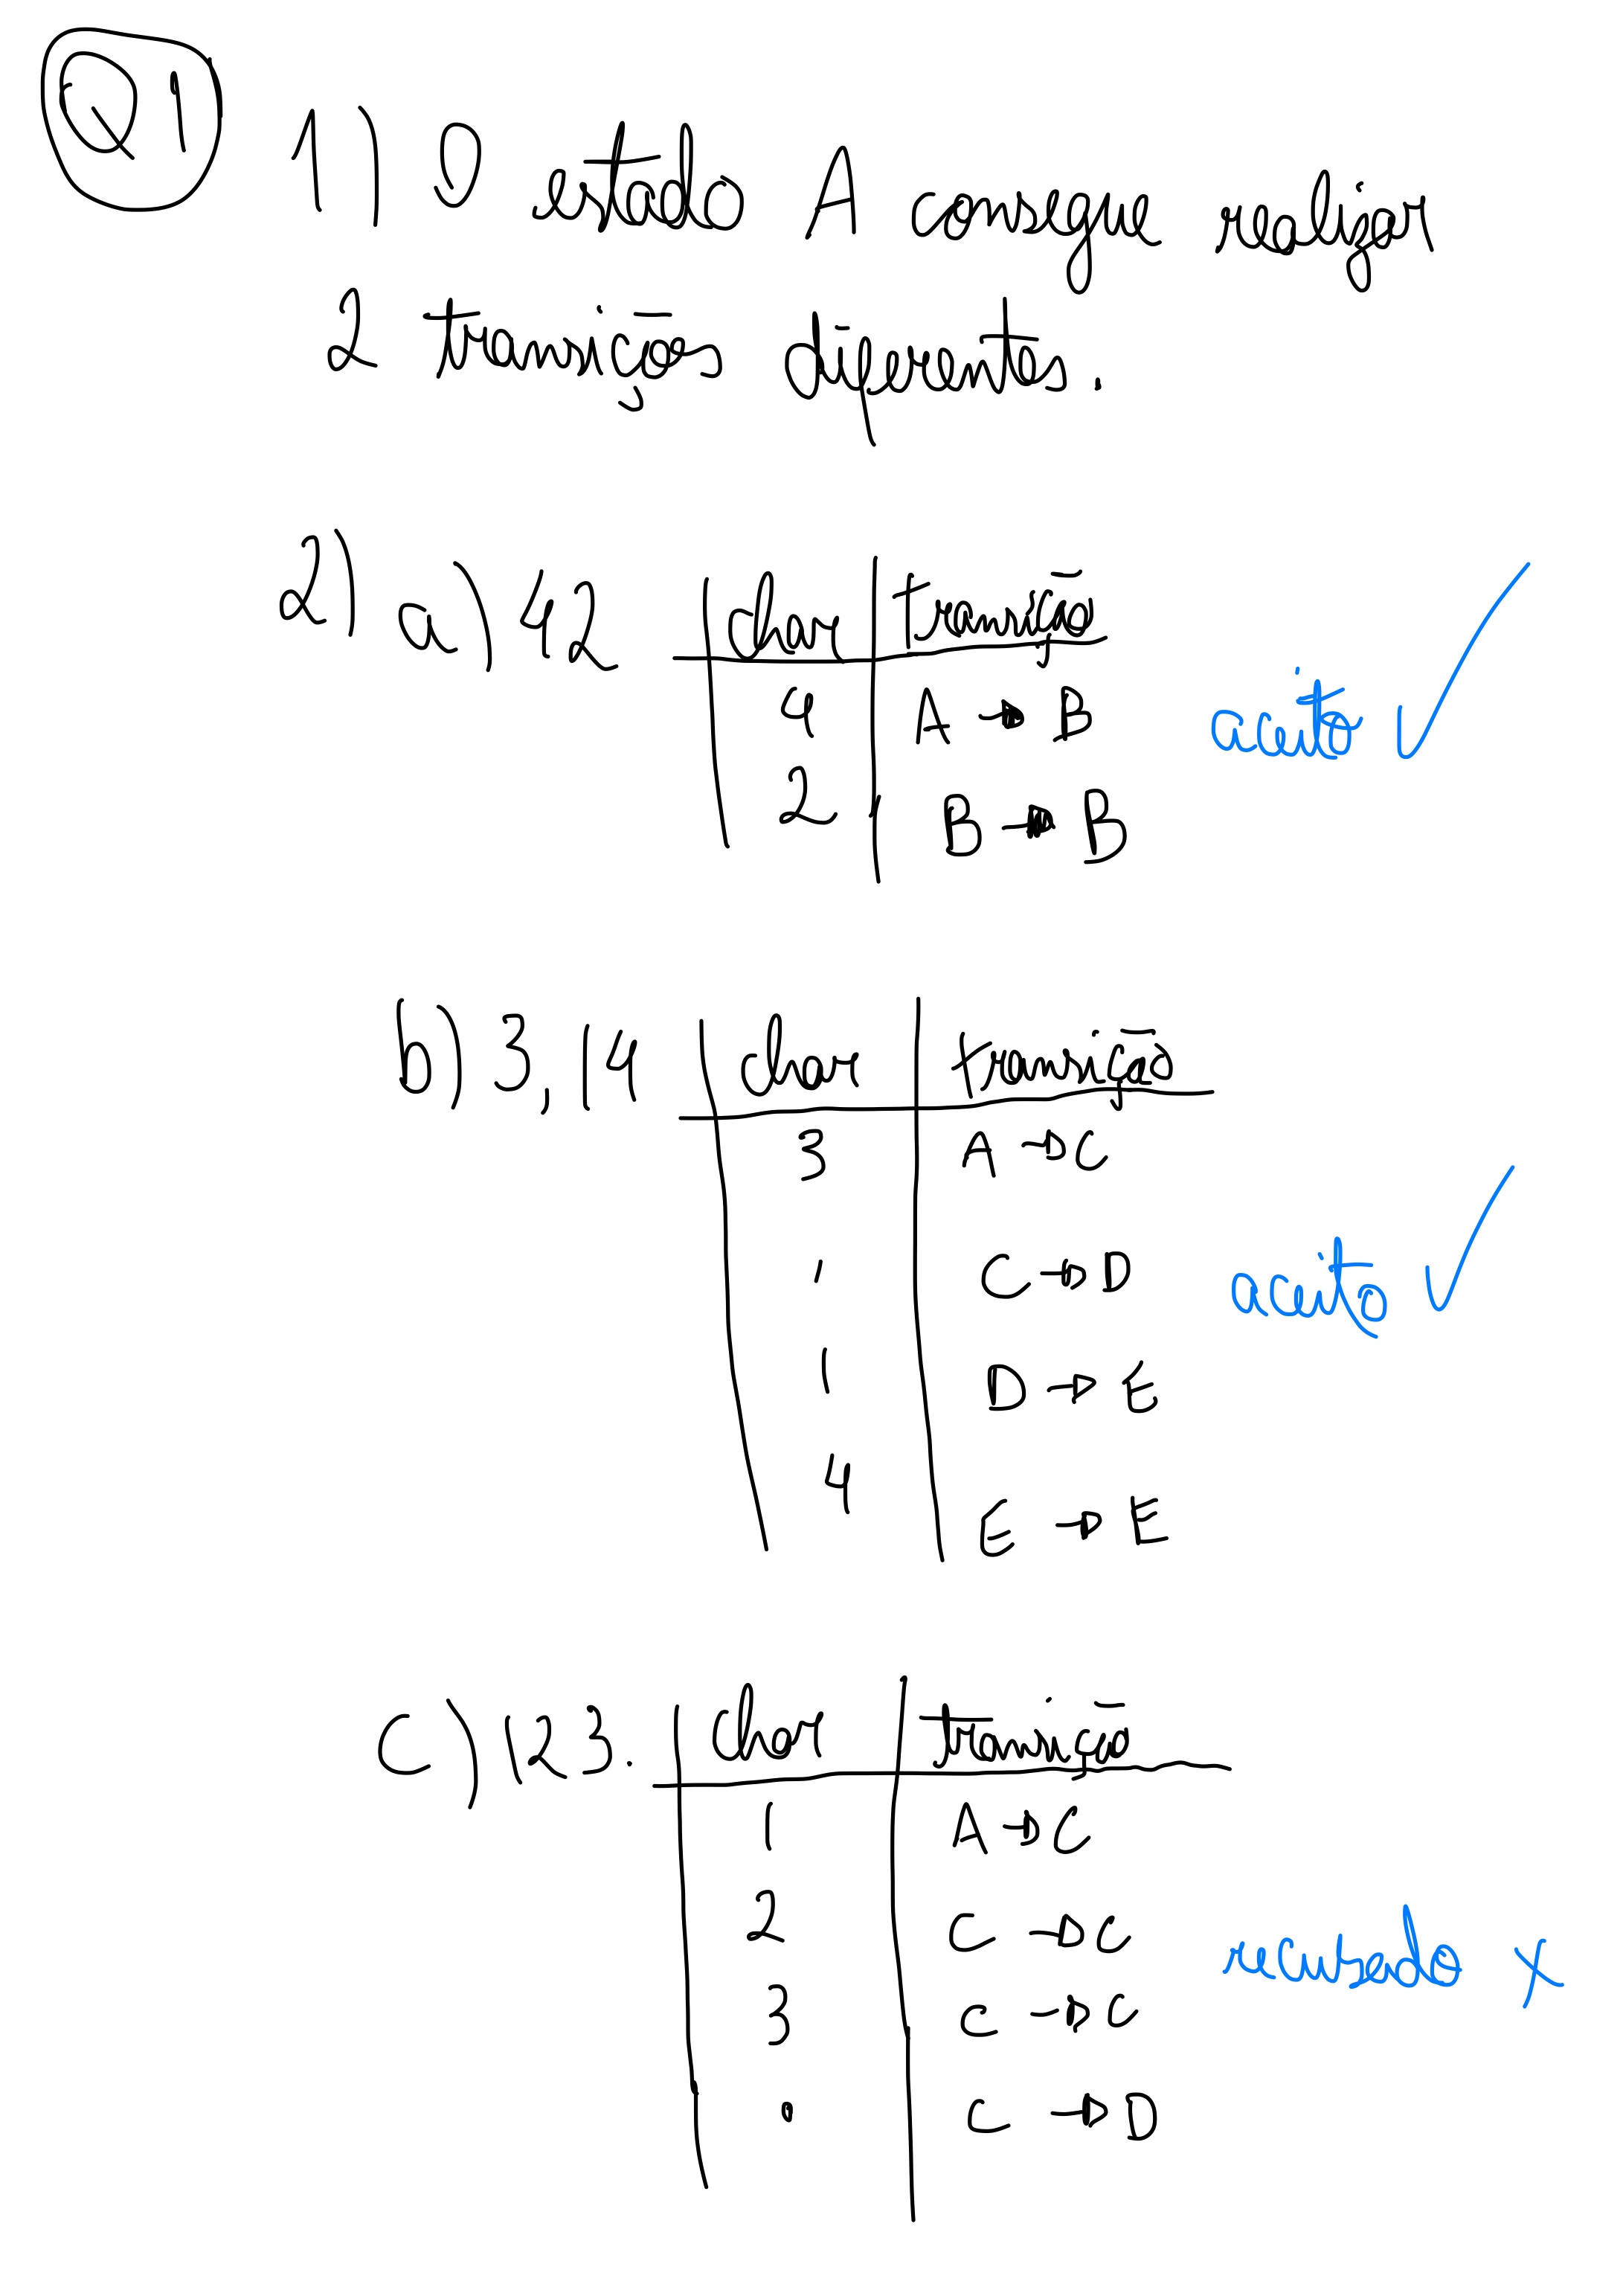 Q1
1) O estado A consegue realizar
2 transições diferentes.
2) a) 42 char transição
4 A → B
2 B → B
aceito ✓
b) 3,14 char transição
3 A → C
, C → D
1 D → E
4 E → E
aceito ✓
c) 123. char transição
1 A → C
2 C → C
3 C → C
. C → D
recusado X